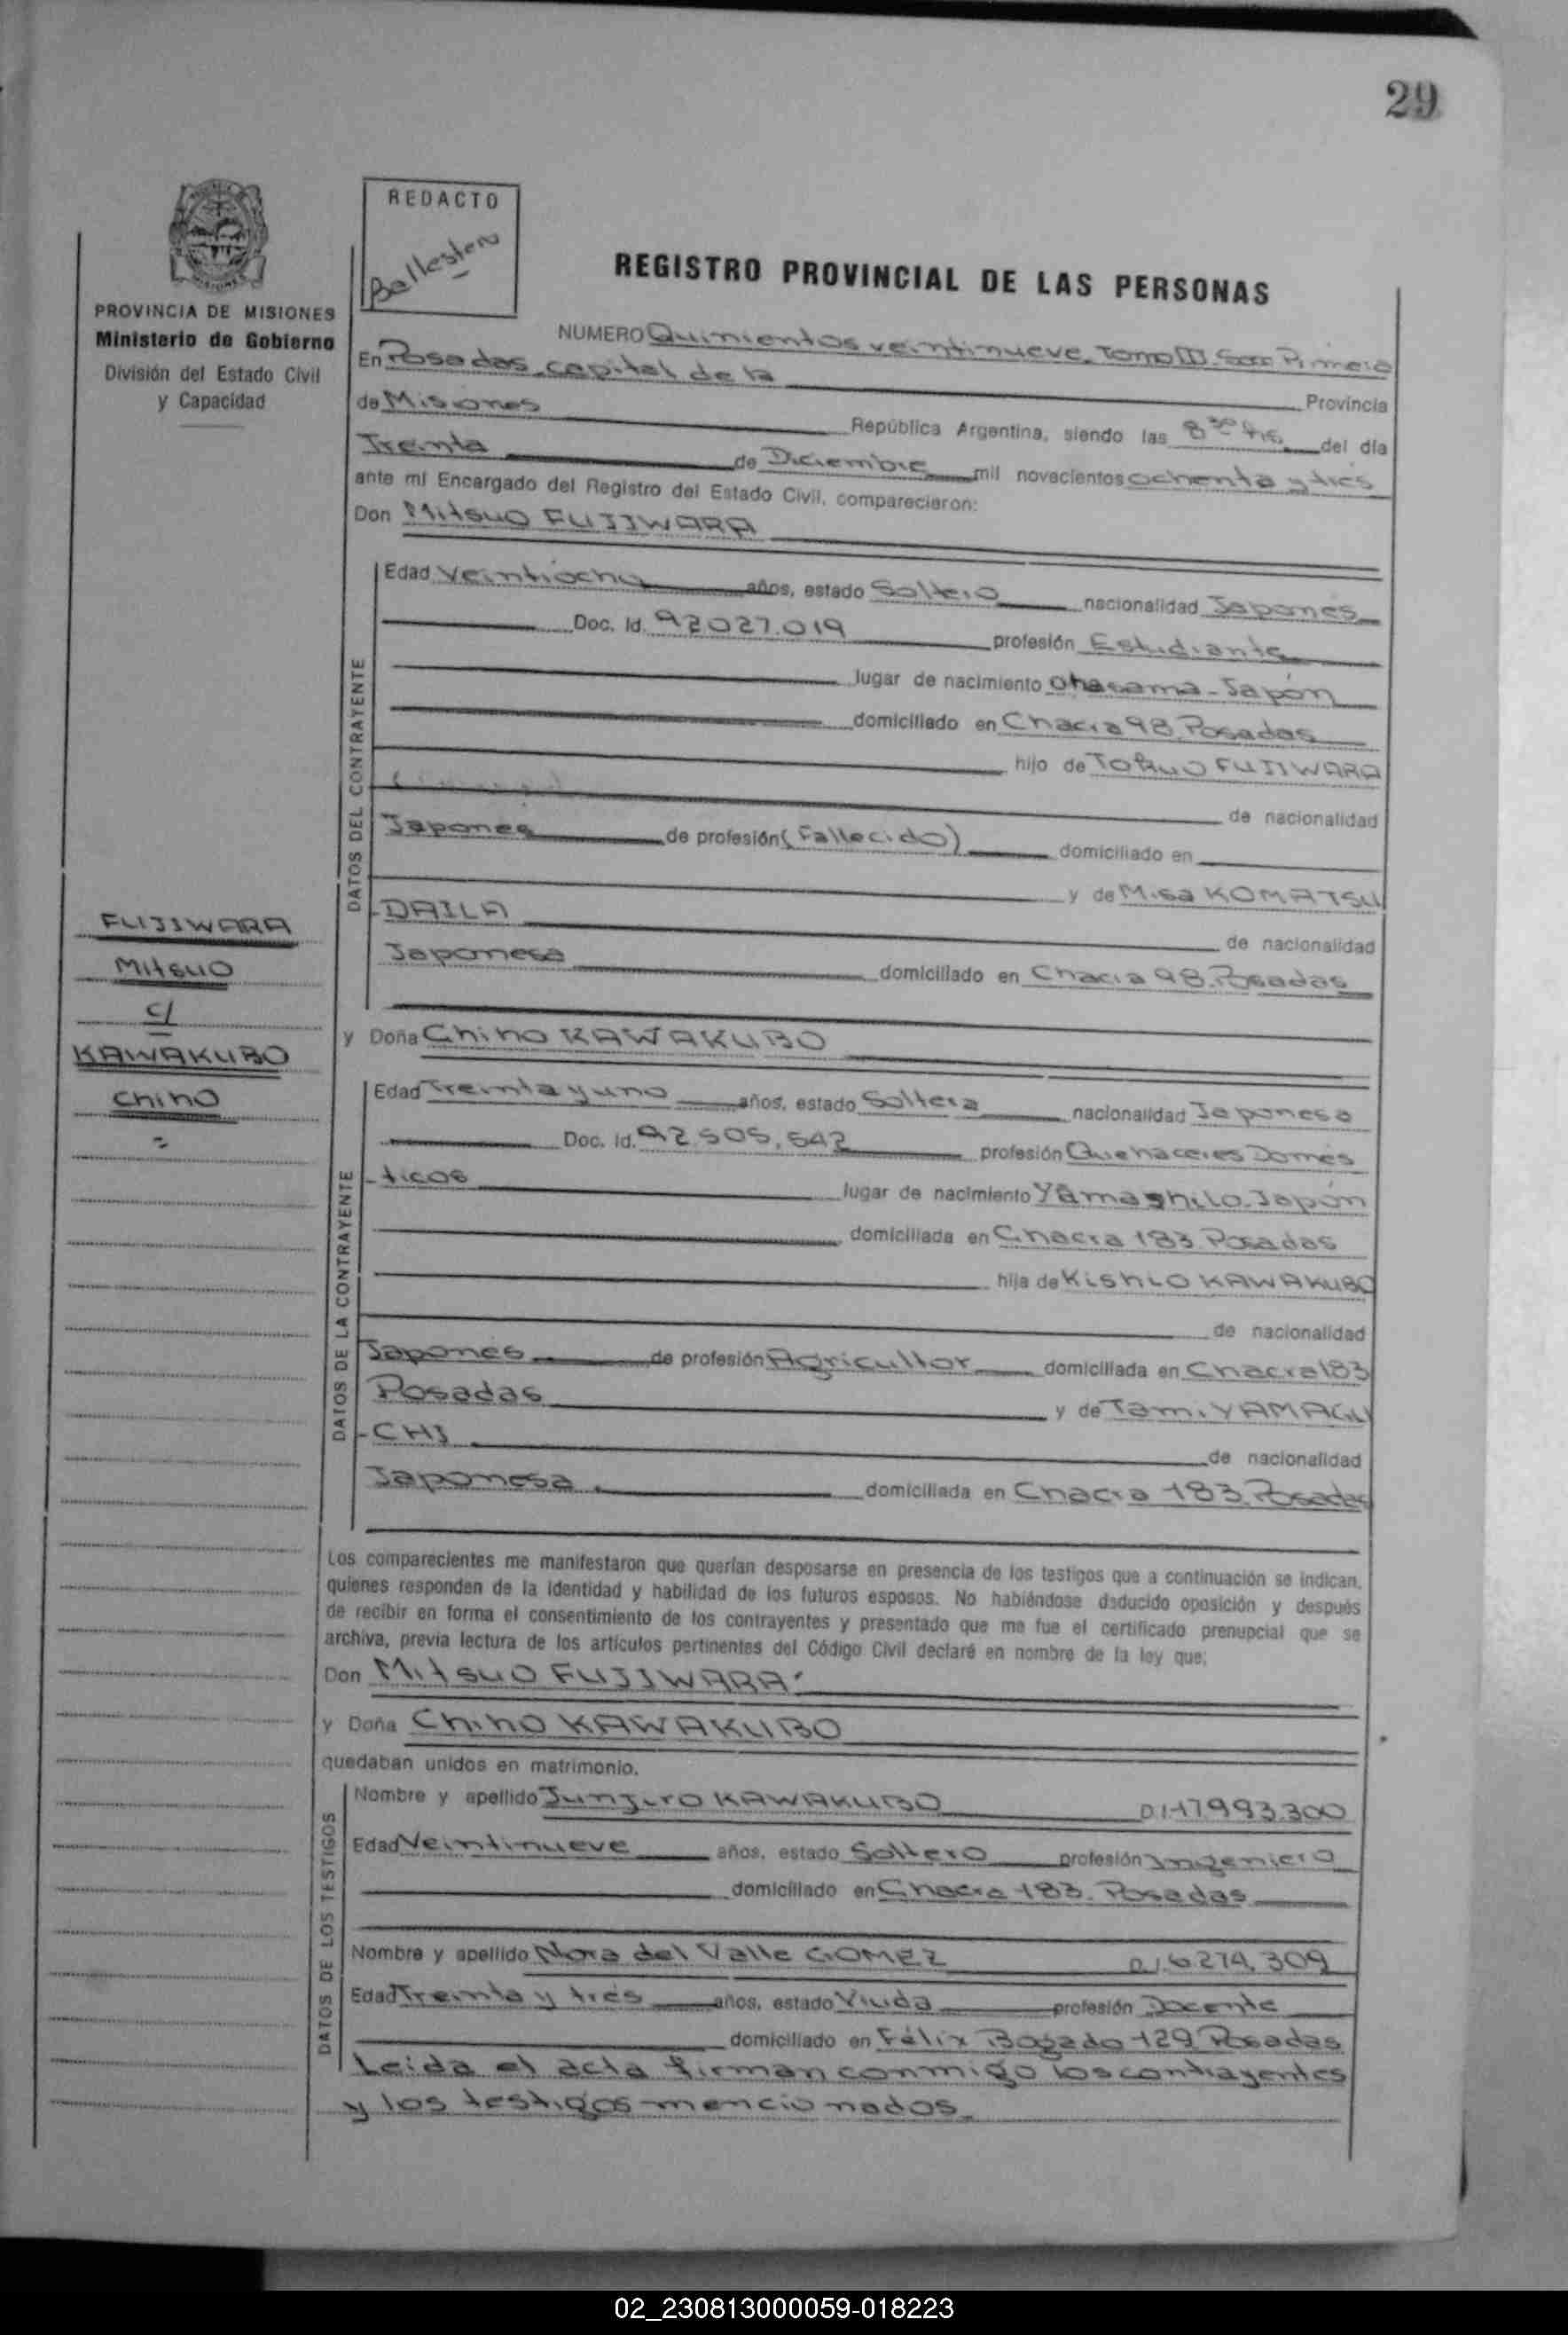 29
REDACTO
Ballestero
REGISTRO PROVINCIAL DE LAS PERSONAS
PROVINCIA DE MISIONES
Ministerio de Gobierno
División del Estado Civil
y Capacidad
NUMERO Quinientos veintinueve. Tomo III. Primera
En Posadas, capital de la Provincia
de Misiones República Argentina, siendo las 8 30 hs. del día
Treinta de Diciembre mil novecientos ochenta y tres
ante mí Encargado del Registro del Estado Civil, comparecieron:
Don Mitsuo FUJIWARA
DATOS DEL CONTRAYENTE
Edad Veintiocho años, estado Soltero nacionalidad Japonés
Doc. Id. 92027.019 profesión Estudiante
lugar de nacimiento Ohasama-Japón
domiciliado en Chacra 98 Posadas
hijo de Tokuo FUJIWARA
de nacionalidad
Japones de profesión (Fallecido) domiciliado en
y de Misa KOMATSU
-DAILA de nacionalidad
Japonesa domiciliado en Chacra 98. Posadas
FUJIWARA
Mitsuo
c/
KAWAKUBO
Chiho
=
y Doña Chiho KAWAKUBO
DATOS DE LA CONTRAYENTE
Edad Treinta y uno años, estado Soltera nacionalidad Japonesa
Doc. Id. 92.505.542 profesión Quehaceres Domes
-ticos lugar de nacimiento Yamashilo. Japón
domiciliada en Chacra 183 Posadas
hija de Kishio KAWAKUBO
de nacionalidad
Japones de profesión Agricultor domiciliada en Chacra 183
Posadas y de Tami YAMAGU
-CHI de nacionalidad
Japonesa domiciliada en Chacra 183. Posadas
Los comparecientes me manifestaron que querían desposarse en presencia de los testigos que a continuación se indican,
quienes responden de la identidad y habilidad de los futuros esposos. No habiéndose deducido oposición y después
de recibir en forma el consentimiento de los contrayentes y presentado que me fue el certificado prenupcial que se
archiva, previa lectura de los artículos pertinentes del Código Civil declaré en nombre de la ley que:
Don Mitsuo FUJIWARA
y Doña Chiho KAWAKUBO
quedaban unidos en matrimonio.
DATOS DE LOS TESTIGOS
Nombre y apellido Junjiro KAWAKUBO D.I.17993.300
Edad Veintinueve años, estado Soltero profesión Ingeniero
domiciliado en Chacra 183. Posadas
Nombre y apellido Nora del Valle GOMEZ D.I.6274.309
Edad Treinta y tres años, estado Viuda profesión Docente
domiciliado en Félix Bogado 129 Posadas
Leida el acta firman conmigo los contrayentes
y los testigos mencionados.
02_230813000059-018223